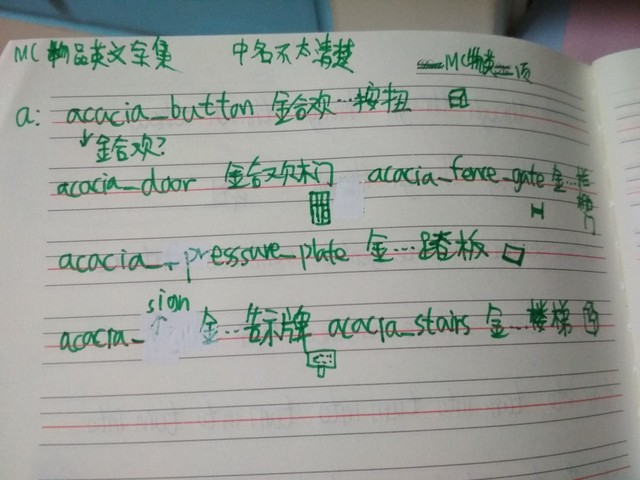 MC物品英文全集 中名不太清楚 MC物类一页
a: acacia_button 金合欢…按扭
↓金合欢?
acacia_door 金合欢木门 acacia_fence_gate 金…栏栅门
acacia_pressure_plate 金…踏板
acacia_sign 金…告示牌 acacia_stairs 金…楼梯